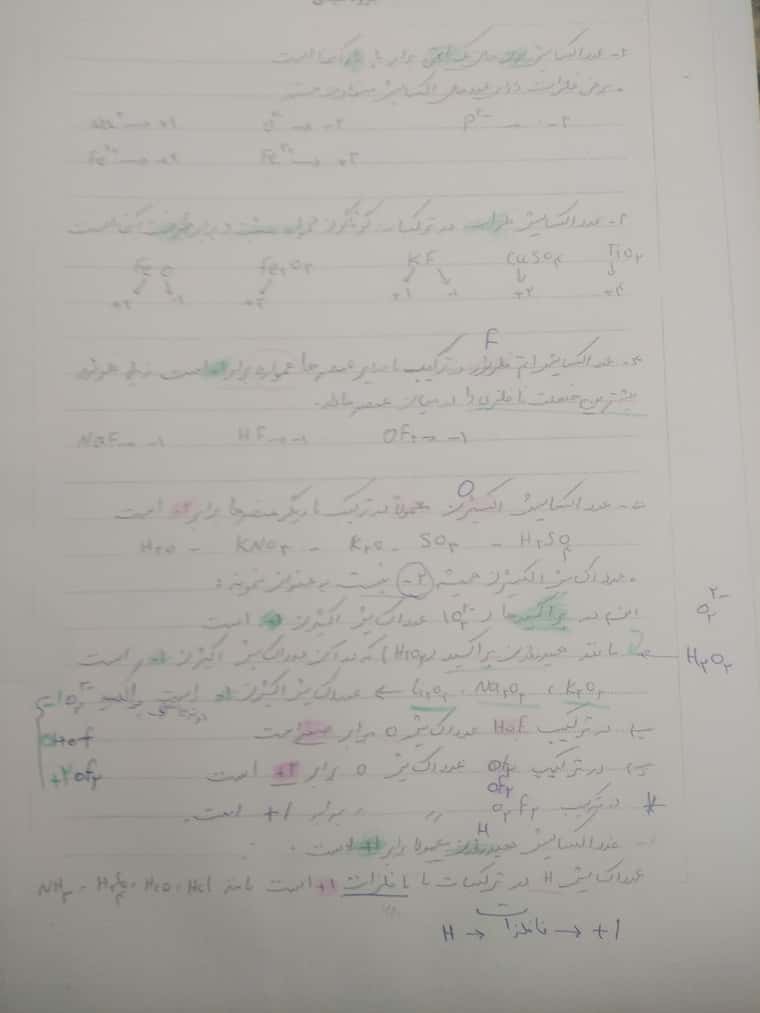 ۲- عدد اکسایش یون های تک اتمی برابر با بار آنها است
• برخی فلزات دارای عددهای اکسایش متفاوت هستند
Na⁺ → +۱ O²⁻ → -۲ P³⁻ → -۳
Fe²⁺ → +۲ Fe³⁺ → +۳
۳- عدد اکسایش فلزات در ترکیبات گوناگون همواره مثبت و برابر ظرفیت آنها است
FeO Fe₂O₃ KF CuSO₄ TiO₂
+۲ -۲ +۳ +۱ -۱ +۲ +۴
F
۴- عدد اکسایش اتم فلوئور در ترکیب با سایر عنصرها همواره برابر است زیرا فلوئور
بیشترین خصلت نافلزی را در میان عنصرها دارد.
NaF → -۱ HF → -۱ OF₂ → -۱
O
۵- عدد اکسایش اکسیژن معمولا در ترکیب با دیگر عنصرها برابر -۲ است
H₂O - KNO₃ - K₂O - SO₃ - H₂SO₄
• عدد اکسایش اکسیژن همیشه (-۲) نیست به عنوان نمونه :
در پراکسیدها (O₂²⁻) عدد اکسایش اکسیژن -۱ است O₂²⁻
مانند هیدروژن پراکسید (H₂O₂) که در آن عدد اکسایش اکسیژن -۱ است H₂O₂
K₂O₂ , Na₂O₂ , ← عدد اکسایش اکسیژن -۱ است پراکسید O₂²⁻ -۱
ب) در ترکیب HOF عدد اکسایش O برابر صفر است 0 HOF
پ) در ترکیب OF₂ عدد اکسایش O برابر +۲ است +۲ OF₂
OF₂
* در ترکیب O₂F₂ " " برابر +۱ است.
H
۶- عدد اکسایش هیدروژن معمولا برابر +۱ است.
عدد اکسایش H در ترکیبات با نافلزات +۱ است مانند HCl - H₂O - H₂SO₄ - NH₃
H → نافلزات → +۱